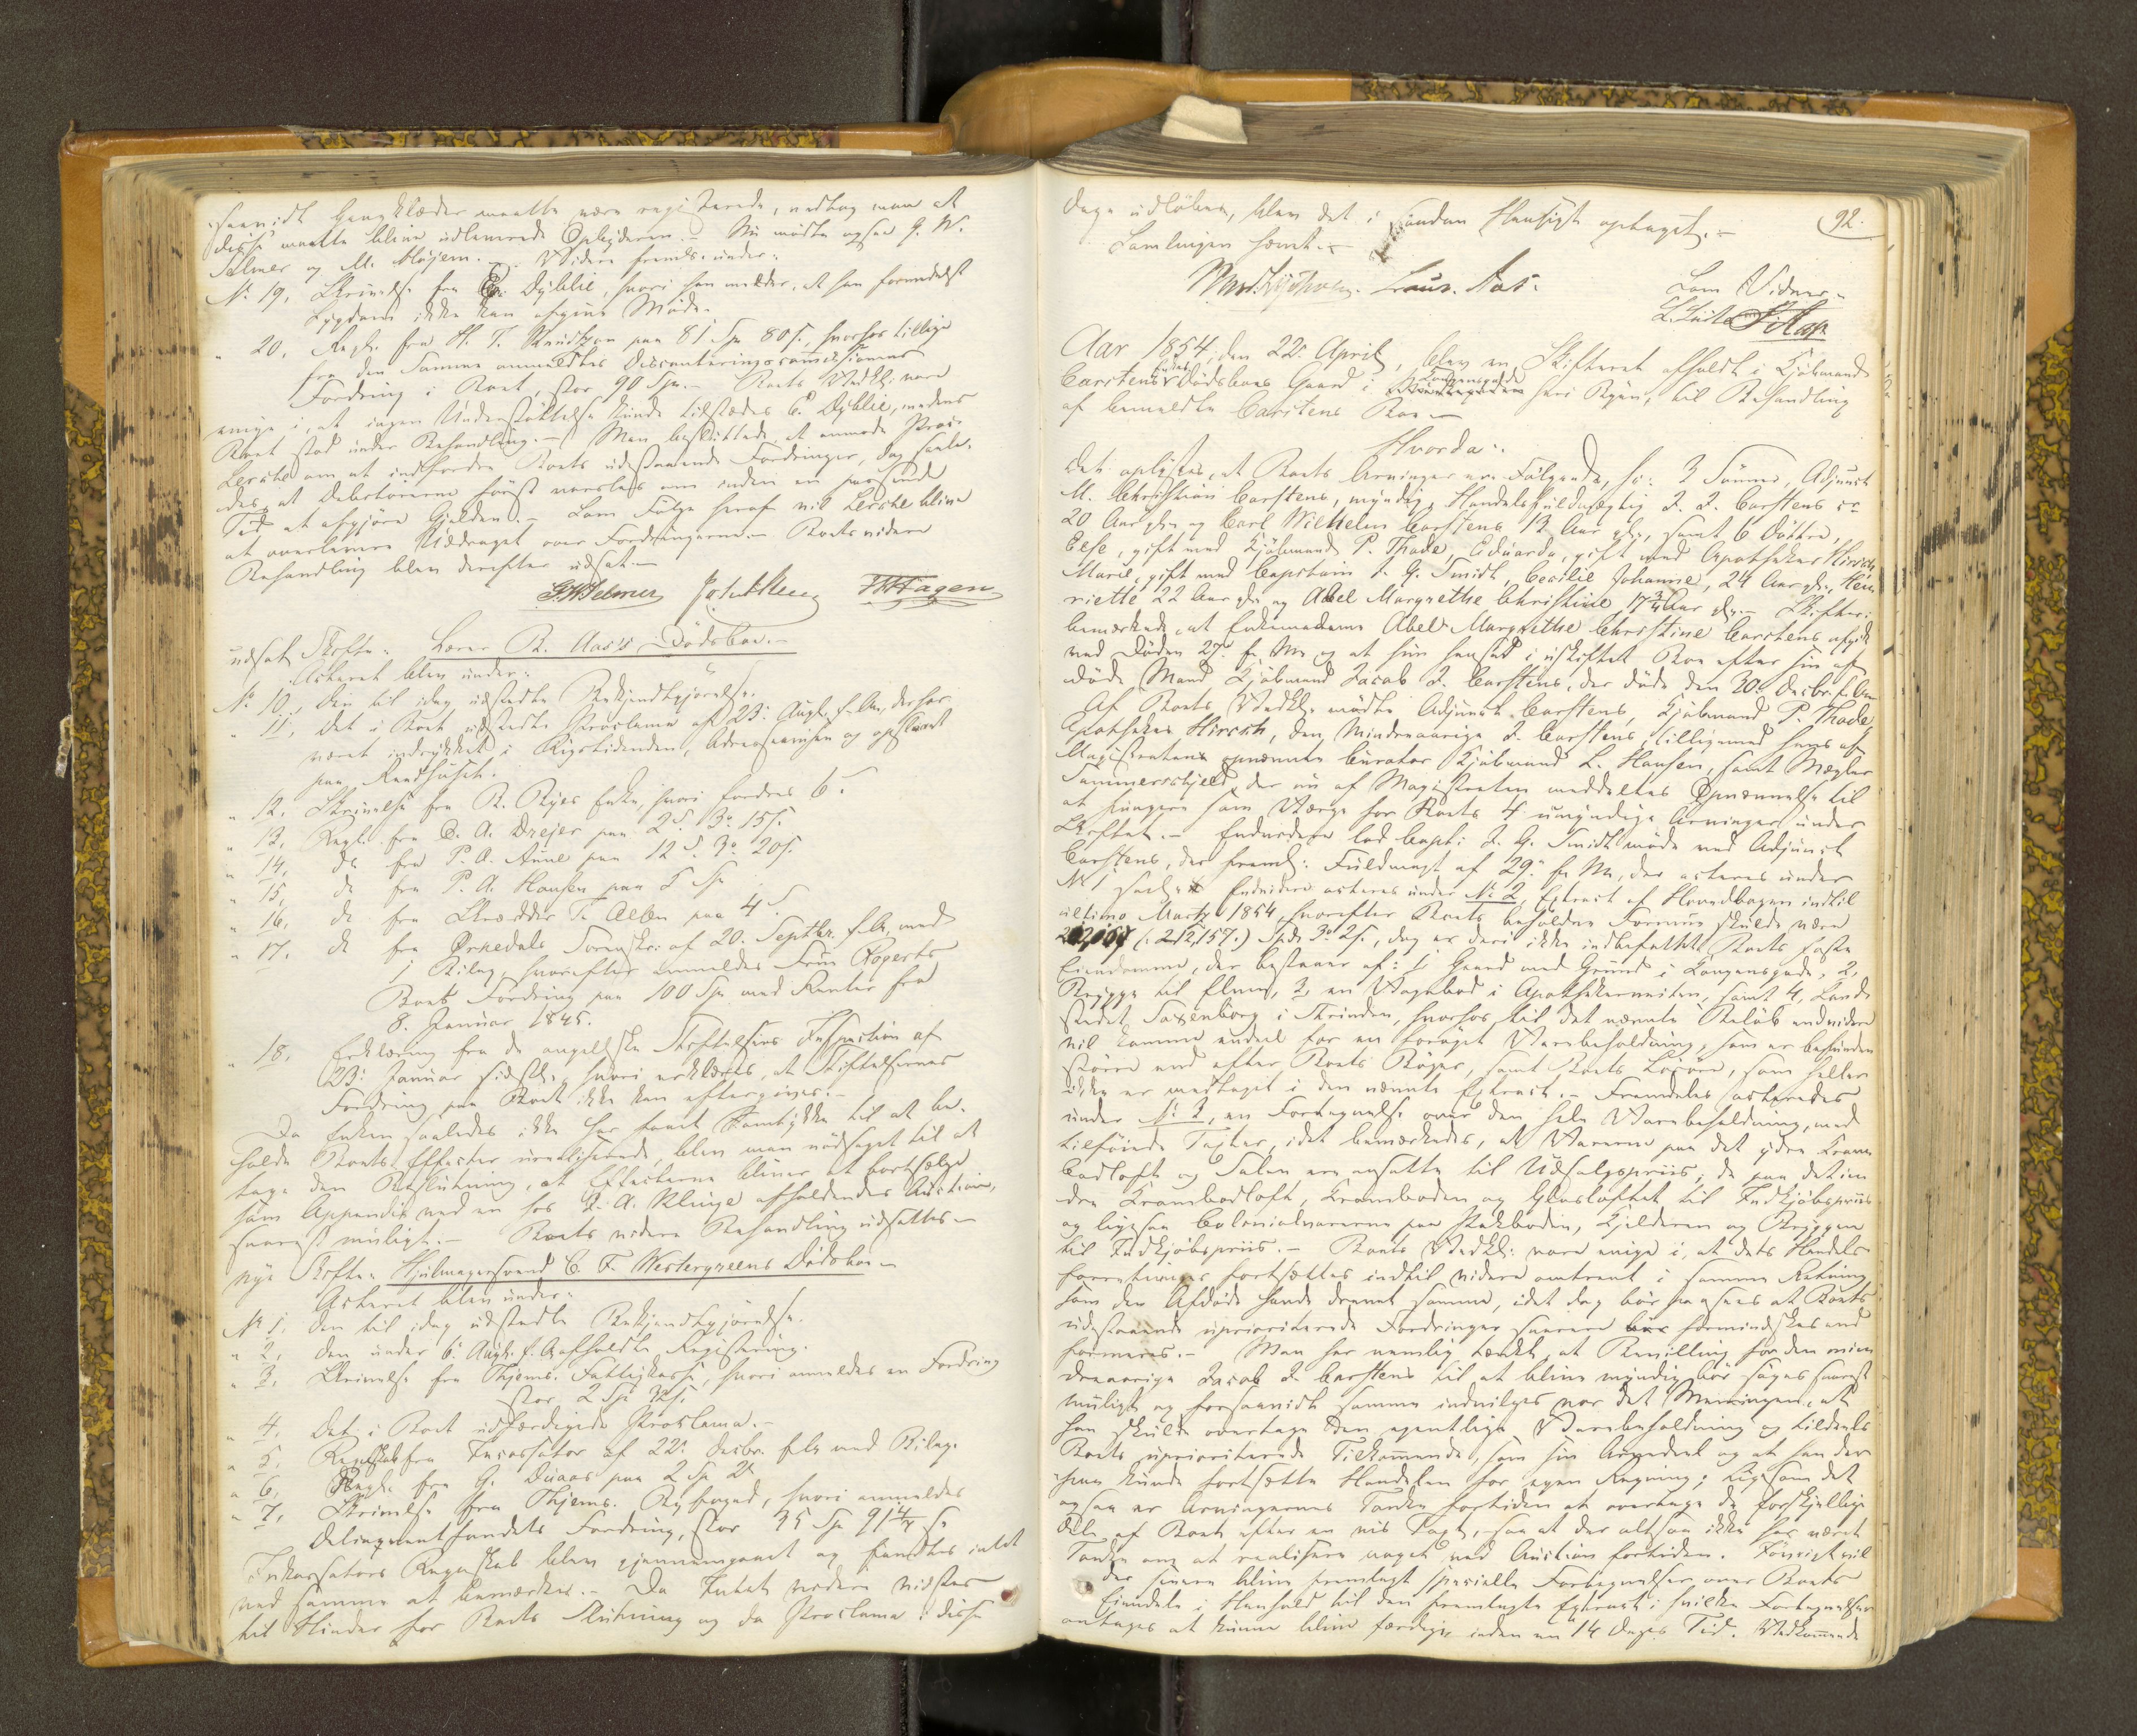 samtidt Gangklæder maatte være registerede, vedtog man at
disse maatte blive udleverede Opbyderen. – Nu mødte ogsaa G. W.
Selmer og M. Høyem. – Videre freml. under:
No 19, Skrivelse fra C. Dyblie, hvori han melder, at han formedelst
Sygdom ikke kan afgive Møde.
" 20, Regn. fra H. T. Knudtzon paa 81 Spd 80 s., hvorhos tillige
fra den Samme anmeldtes Disconteringscommissionens
Fordring i Boet, stor 90 Spd. – Boets Vedk. vare
enige i, at ingen Understøttelse kunde tilstaaes C. Dyblie, medens
Boet stod under Behandling. – Man besluttede, at anmode Proc.
Lerche om at indfordre Boets udestaaende Fordringer, dog saale-
des, at Debitorerne først varsles om inden en passende
Tid at afgjøre Gjælden. – Som Følge heraf vil Lerche blive
at overlevere Uddraget over Fordringerne. – Boets videre
Behandling blev derefter udsat. –
G. W. Selmer THagen
udsat Skifte: Lærer B. Aas's Dødsboe. –
Acteret blev under:
No 10, Den til idag udstedte Bekjendtgjørelse.
" 11, Det i Boet udstedte Proclama af 23. Augt. f. A., der har
været indrykket i Rigstidenden, Adresseavisen og opslaaet
paa Raadhuset.
" 12, Skrivelse fra B. Ryes Enke, hvori fordres 6
" 13, Regn. fra C. A. Drejer paa 2 3 15 s.
" 14, do fra P. A. Aune paa 12 3 20 s.
" 15, do fra P. A. Hansen paa 5 Sp
" 16, do fra Skrædder T. Alben paa 4
" 17, do fra Ørkedals Sorenskr. af 20. Septbr. f. A., med
1 Bilag, hvorefter anmeldes Frue Rogerts
Boes Fordring paa 100 Spd med Renter fra
8. Januar 1845.
" 18, Erklæring fra de angellske Stiftelsers Inspection af
23. Januar sidstl., hvori erklæres, at Stiftelsernes
Fordring paa Boet ikke kan eftergives. –
Da Enken saaledes ikke har faaet Samtykke til at be-
holde Boets Effecter urealiserede, blev man nødsaget til at
tage den Beslutning, at Effecterne bliver at bortsælge
som Appendix ved en hos P. A. Klinge afholdendes Auction,
snarest muligt. – Boets videre Behandling udsattes. –
nye Skifte: Hjulmagersvend C. F. Westergreens Dødsboe –
Acteret blev under:
No 1, den til idag udstedte Bekjendtgjørelse.
" 2, den under 6. Augt. f. A. afholdte Registering.
" 3, Skrivelse fra Thjems. Fattigkasse, hvori anmeldes en Fordring
stor 2 Sp 32 s.
" 4, Det i Boet udfærdigede Proclama. –
" 5, Regnskab fra Incassator af 22. Decbr. f. A. med Bilag.
" 6, Regn. fra G. Duaas paa 2 Sp
" 7, Skrivelse fra Thjems. Byfoged, hvori anmeldes
Delinqventfondets Fordring, stor 35 Sp 91 s.
Incassators Regnskab blev gjennemgaaet og fandtes intet
ved samme at bemærkes. – Da Intet videre vidstes
til Hinder for Boets Slutning og da Proclama i disse
92.
Dage udløber, blev det i saadan Hensigt optaget. –
Samlingen hævet. –
Laur. Aas.
Som Vidner:
Aar 1854, den 22. April, blev en Skifteret afholdt i Kjøbmand
Carstens Enkes Dødsboes Gaard i Kongensgade heri Byen, til Behandling
af bemeldte Carstens Boe –
Hvorda:
Det oplystes, at Boets Arvinger ere Følgende, sc: 3 Sønner, Adjunct
M. Christian Carstens, myndig, Handelsfuldmægtig J. J. Carstens ca
20 Aar gl. og Carl Wilhelm Carstens 13 Aar gl., samt 6 Døttre,
Else, gift med Kjøbmand P. Thade, Eduarda, gift med Apotheker Hirsch,
Marie, gift med Capitain J. G. Smidt, Cecilie Johanne, 24 Aar gl., Hen-
riette 22 Aar gl. og Abel Margrethe Christine 17 3/4 Aar gl. – Skifter.
bemærkede, at Enkemadame Abel Margrethe Christine Carstens afgik
ved Døden 27. f. M. og at hun hensad i uskiftet Boe efter sin af-
døde Mand Kjøbmand Jacob J. Carstens, der døde den 30. Decbr. f. A.
Af Boets Vedk. mødte Adjunct Carstens, Kjøbmand P. Thade,
Apotheker Hirsch, den Mindreaarige J. Carstens, tilligemed hans af
Magistraten opnævnte Curator Kjøbmand L. Hansen, samt Mægler
Sommerschjeld, der nu af Magistraten meddeltes Opnævnelse til
at fungere som Værge for Boets 4 umyndige Arvinger under
Skiftet. – Endvidere lod Capt. J. G. Smidt møde ved Adjunct
Carstens, der freml. Fuldmagt af 29. f. M., der acteres under
No 1 Endvidere acteres under No 2, Extract af Hovedbogen indtil
ultimo Marts 1854, hvorefter Boets beholdne Formue skulde være
(: 212,157.) Spd. 3 2 s., dog er deri ikke indbefattet Boets faste
Eiendomme, der bestaaer af: 1, Gaard med Grund i Kongensgade, 2,
Brygge til Elven, 3, en Vognbod i Apothekerveiten, samt 4, Land-
stedet Saxenborg i Strinden, hvorhos til det nævnte Beløb endvidere
vil komme endeel for en forøget Varebeholdning, som er befunden
større end efter Boets Bøger, samt Boets Løsøre, som heller
ikke er medtaget i den nævnte Extract. – Fremdeles acteredes
under No 3, en Fortegnelse over den hele Varebeholdning, med
tilføiede Taxter, idet bemærkedes, at Varerne paa det ydre Kram-
bodloft og Salen ere ansatte til Udsalgspriis; de paa det in-
dre Krambodloft, Kramboden og Glasloftet til Indkjøbspriis
og ligesaa Colonialvarerne paa Pakboden, Kjelderen og Bryggen
til Indkjøbspriis. – Boets Vedk. vare enige i, at dets Handels-
forretninger fortsættes indtil videre omtrent i samme Retning
som den Afdøde havde drevet samme, idet dog bør paasees at Boets
udestaaende uprioriterede Fordringer snarere bør formindskes end
formeres. – Man har nemlig tænkt, at Bevilling for den min-
dreaarige Jacob J. Carstens til at blive myndig bør søges snarest
muligt og forsaavidt samme indvilges var det Meningen, at
han skulde overtage den egentlige Varebeholdning og tildeels
Boets uprioriterede Tilkommende, som sin Arvedeel og at han der-
paa kunde fortsætte Handelen for egen Regning; ligesom det
ogsaa er Arvingernes Tanke fortiden at overtage de forskjellige
Dele af Boet efter en vis Taxt, saa at der altsaa ikke har været
Tanke om at realisere noget ved Auction fortiden. Forøvrigt vil
der senere blive fremlagt specielle Fortegnelser over Boets
Eiendele i Henhold til den fremlagte Extract; hvilke Fortegnelser
antages at kunne blive færdige inden en 14 Dages Tid. Vedkommende